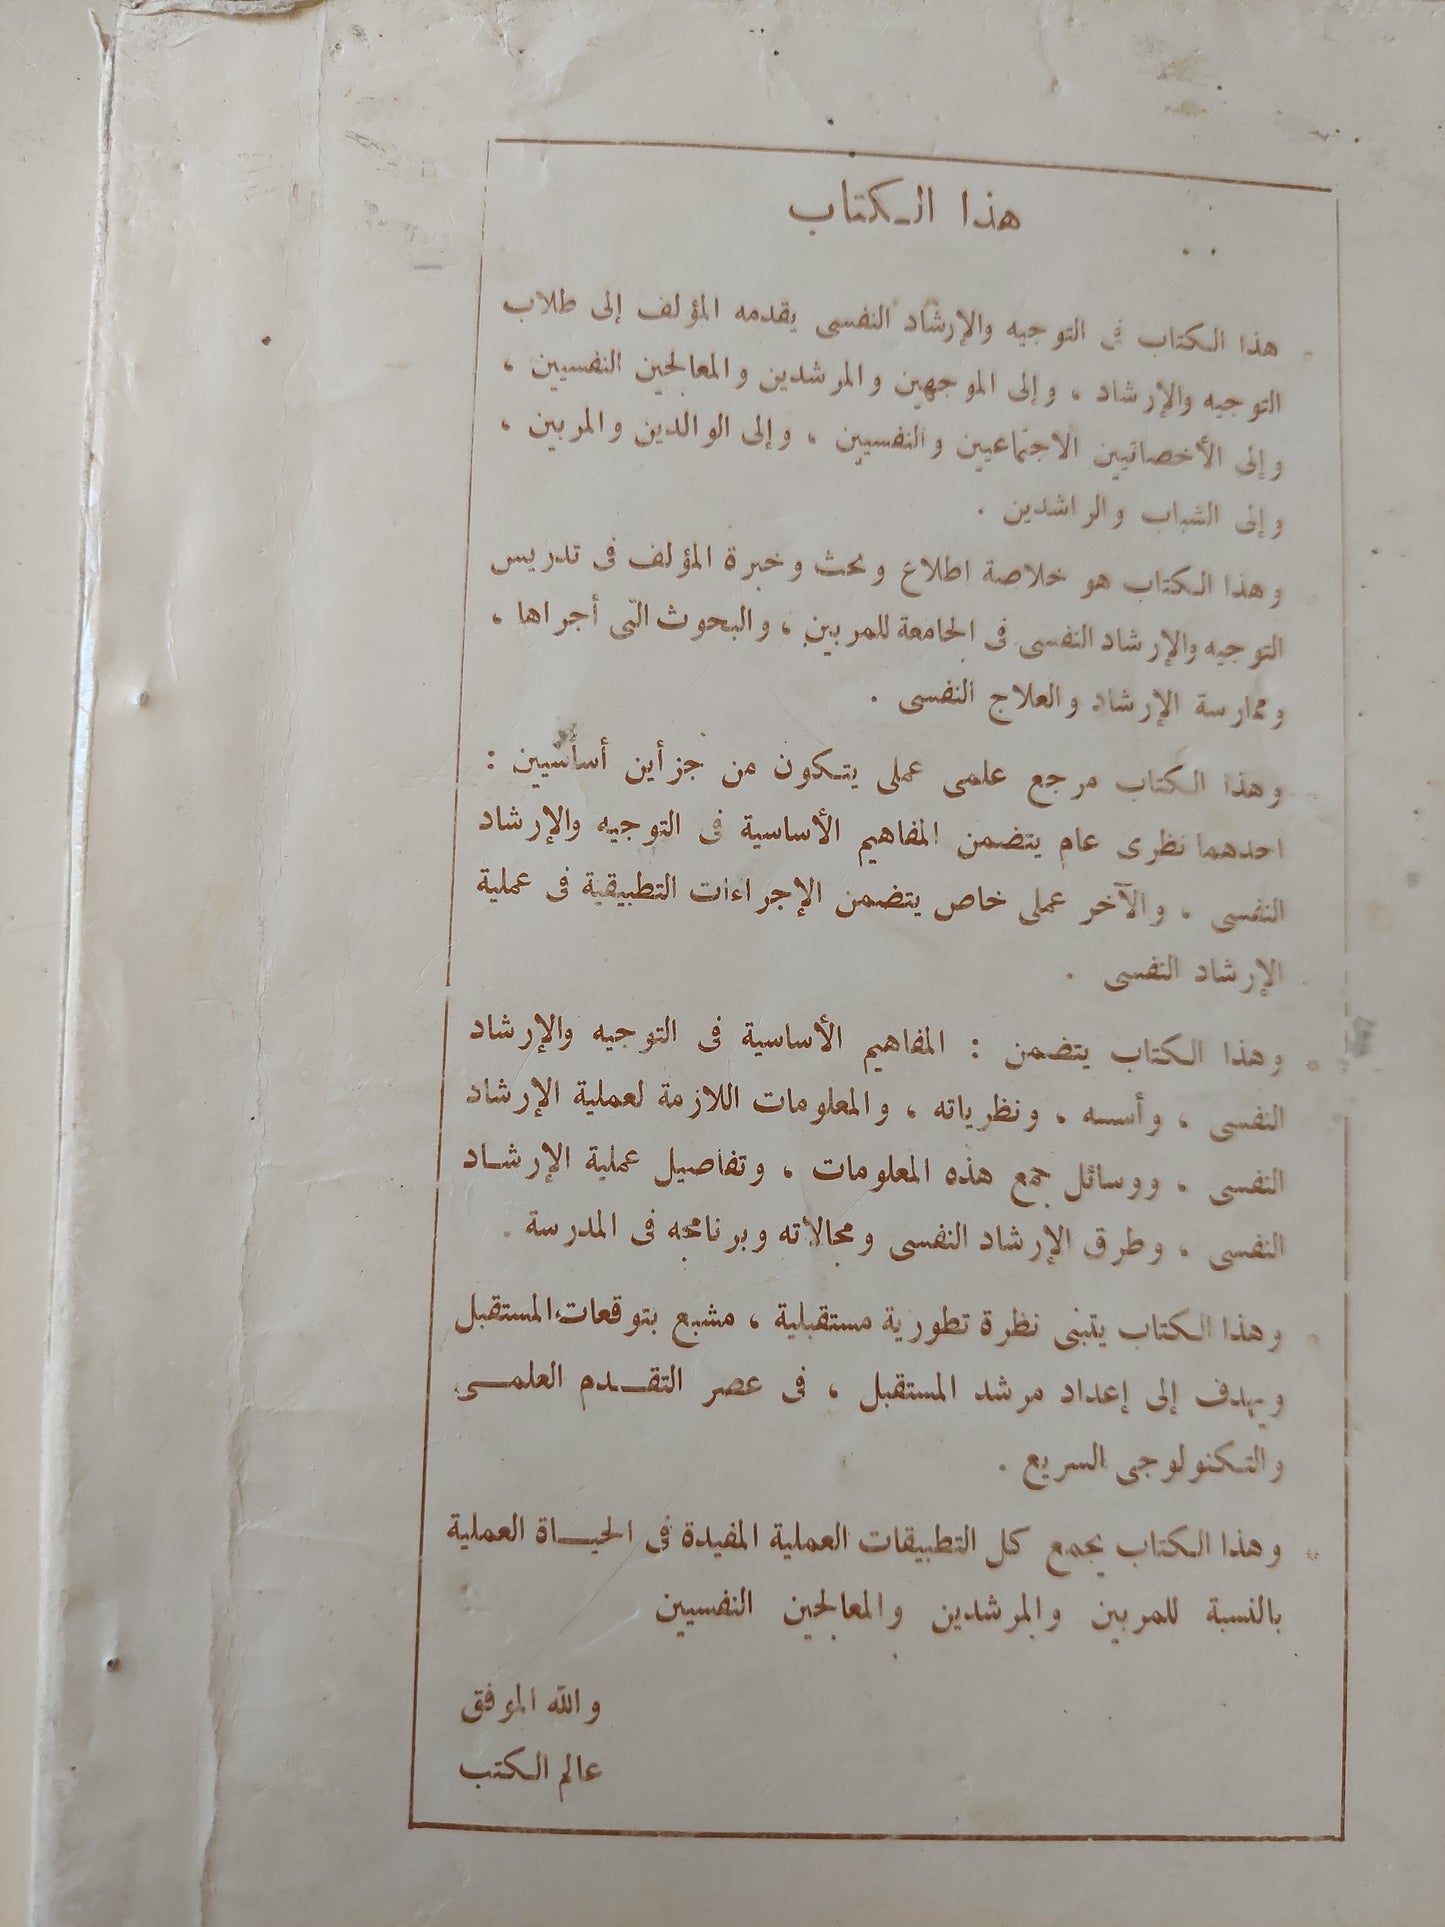 هذا الكتاب
هذا الكتاب فى التوجيه والإرشاد النفسى يقدمه المؤلف إلى طلاب
التوجيه والإرشاد ، وإلى الموجهين والمرشدين والمعالجين النفسيين ،
وإلى الأخصائيين الاجتماعيين والنفسيين ، وإلى الوالدين والمربين ،
وإلى الشباب والراشدين .
وهذا الكتاب هو خلاصة اطلاع وبحث وخبرة المؤلف فى تدريس
التوجيه والإرشاد النفسى فى الجامعة للمربين ، والبحوث التى أجراها ،
وممارسة الإرشاد والعلاج النفسى .
وهذا الكتاب مرجع علمى عملى يتكون من جزأين أساسيين :
احدهما نظرى عام يتضمن المفاهيم الأساسية فى التوجيه والإرشاد
النفسى ، والآخر عملى خاص يتضمن الإجراءات التطبيقية فى عملية
الإرشاد النفسى .
* وهذا الكتاب يتضمن : المفاهيم الأساسية فى التوجيه والإرشاد
النفسى ، وأسسه ، ونظرياته ، والمعلومات اللازمة لعملية الإرشاد
النفسى ، ووسائل جمع هذه المعلومات ، وتفاصيل عملية الإرشاد
النفسى ، وطرق الإرشاد النفسى ومجالاته وبرنامجه فى المدرسة .
* وهذا الكتاب يتبنى نظرة تطورية مستقبلية ، مشبع بتوقعات المستقبل
ويهدف إلى إعداد مرشد المستقبل ، فى عصر التقدم العلمى
والتكنولوجى السريع .
* وهذا الكتاب يجمع كل التطبيقات العملية المفيدة فى الحياة العملية
بالنسبة للمربين والمرشدين والمعالجين النفسيين
والله الموفق
عالم الكتب